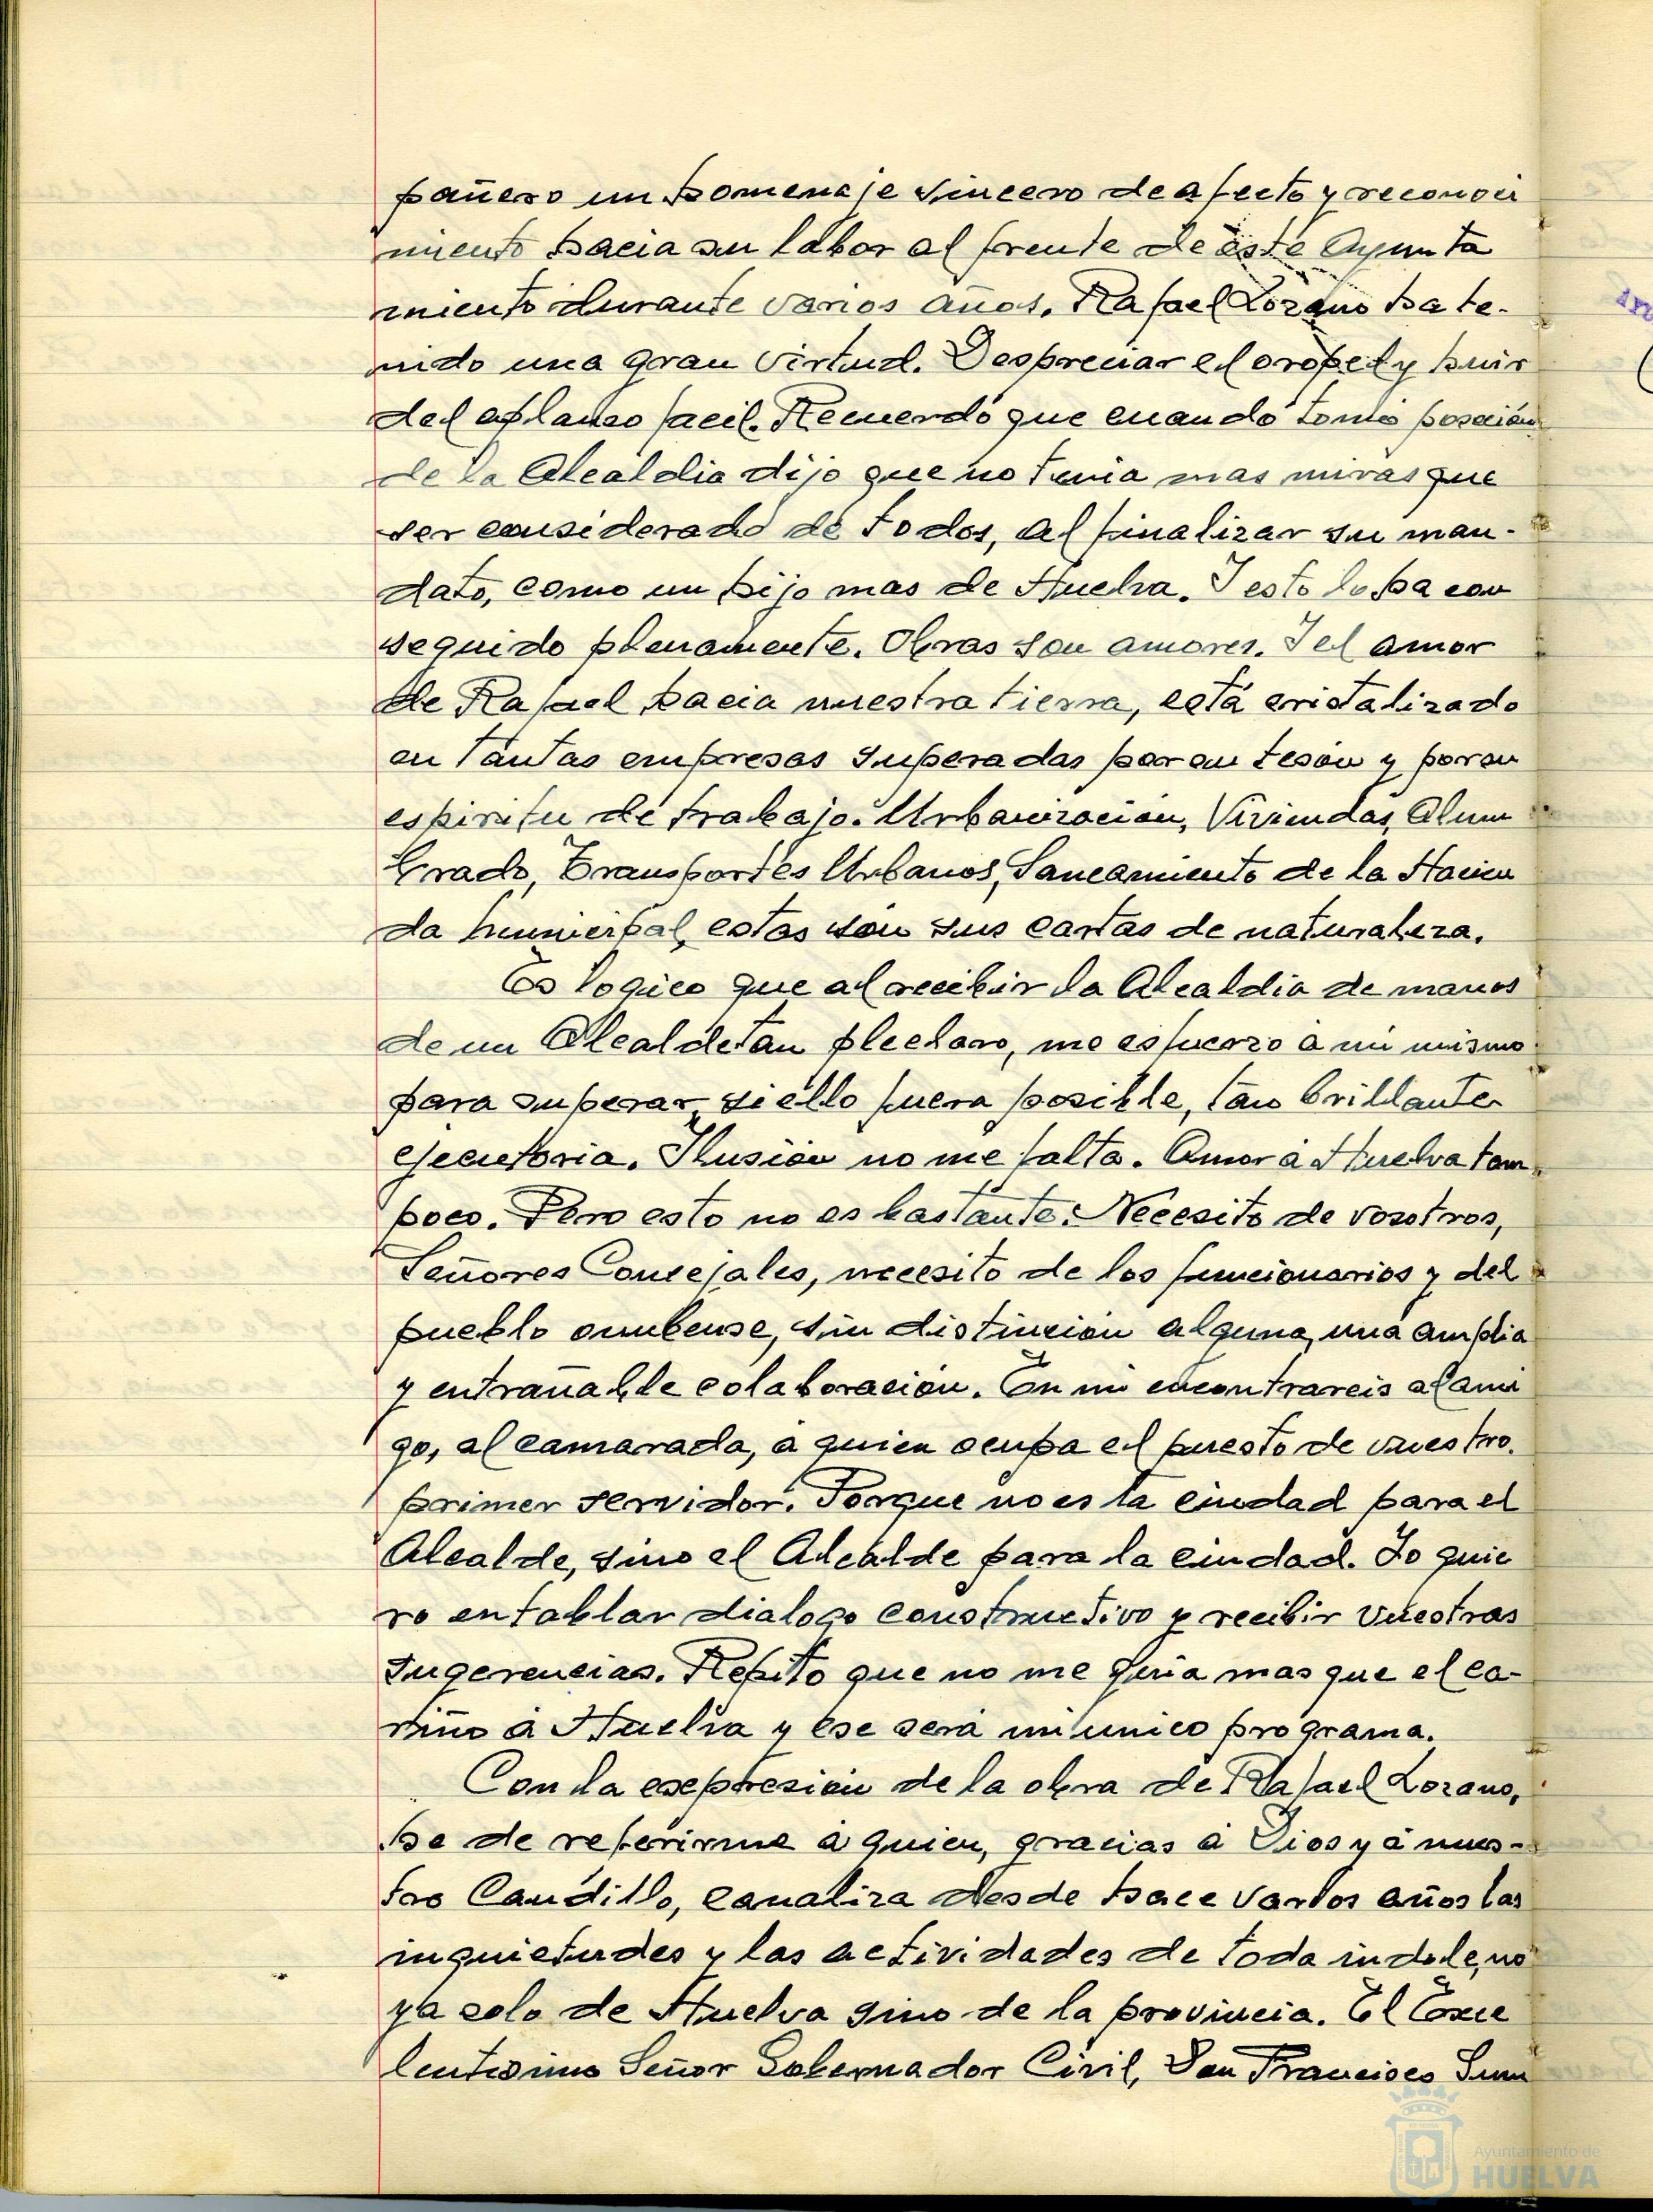 pañero un homenaje sincero de afecto y reconoci
miento hacia su labor al frente de éste Ayunta
miento durante varios años. Rafael Lozano ha te-
nido una gran virtud. Despreciar el oropel y huir
del aplauso facil. Recuerdo que cuando tomó posesión
de la Alcaldia dijo que no tenia mas miras que
ser considerado de todos, al finalizar su man-
dato, como un hijo mas de Huelva. Y esto lo ha con
seguido plenamente. Obras son amores. Y el amor
de Rafael hacia nuestra tierra, está cristalizado
en tantas empresas superadas por su tesón y por su
espiritu de trabajo. Urbanización, Viviendas, Alum
brado, Transportes Urbanos, Saneamiento de la Hacien
da Municipal, estas son sus cartas de naturaleza.
Es logico que al recibir la Alcaldia de manos
de un Alcalde tan preclaro, me esfuerzo a mi mismo
para superar, si ello fuera posible, tan brillante
ejecutoria. Ilusión no me falta. Amor a Huelva tam
poco. Pero esto no es bastante. Necesito de vosotros,
Señores Concejales, necesito de los funcionarios y del
pueblo onubense, sin distinción alguna, una amplia
y entrañable colaboración. En mi encontrareis al ami
go, al camarada, a quien ocupa el puesto de vuestro
primer servidor. Porque no es la ciudad para el
Alcalde, sino el Alcalde para la ciudad. Yo quie
ro entablar dialogo constructivo y recibir vuestras
sugerencias. Repito que no me guia mas que el ca-
riño a Huelva y ese será mi unico programa.
Con la expresión de la obra de Rafael Lozano,
he de referirme a quien, gracias a Dios y a nues-
tro Caudillo, canaliza desde hace varios años las
inquietudes y las actividades de toda indole, no
ya solo de Huelva sino de la provincia. El Exce
lentisimo Señor Gobernador Civil, Don Francisco Sum
Ayuntamiento de
HUELVA